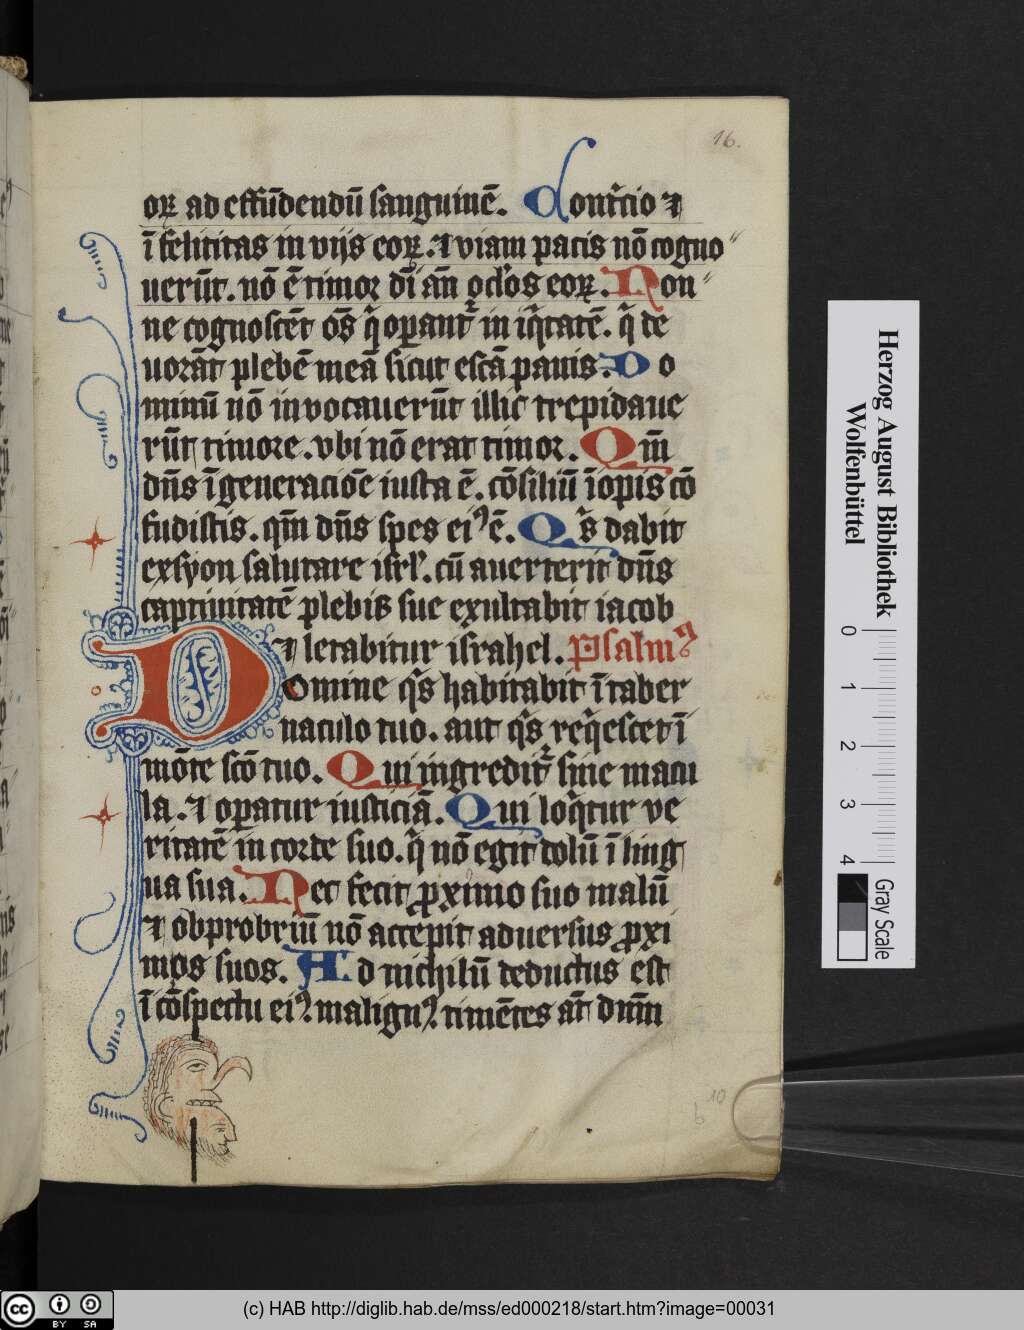 16.
orꝝ ad effūdendū sanguinē. Contͥcio ⁊
ī felicitas in vijs eorꝝ. ⁊ viam pacis nō cogno〃
uerūt. nō ē timor dī an̄ oclo̓s eorꝝ. Non〃
ne cognoscēt om̄s q̄ oꝑant᷑ in iq̇tatē. q̄ de
uorāt plebē meā sicut escā panis. Do
minū nō invocauerūt illic trepidaue
rūt timore. vbi nō erat timor. Qm̄
dn̄s ī generacıōe iusta ē. cōsiliū īopis cō
fudistis. qm̄ dn̄s spes eiꝰ ē. Qͥs dabit
exsyon salutare isrl̓. cū auerterit dn̄s
captiuitatē plebis sue exultabit iacob
⁊ letabitur israhel. Psalmꝰ
Domine qͥs habitabit ī taber
naculo tuo. aut qͥs req̇escet ī
mōte scō tuo. Qui ingredit᷑ sine macu
la. ⁊ oꝑatur iusticiā. Qui loq̇tur ve
ritatē in corde suo. q̄ nō egit dolū ī ling
ua sua. Nec fecit ꝓximo suo malū
⁊ obprobriū nō accepit aduersus ꝓxi
mos suos. Ad nichilū deductus est
ī cōspectu eiꝰ malignꝰ. timētes aūt dn̄m
10
b
Herzog August Bibliothek
Wolfenbüttel
0 1 2 3 4
Gray Scale
cc BY SA
(c) HAB http://diglib.hab.de/mss/ed000218/start.htm?image=00031